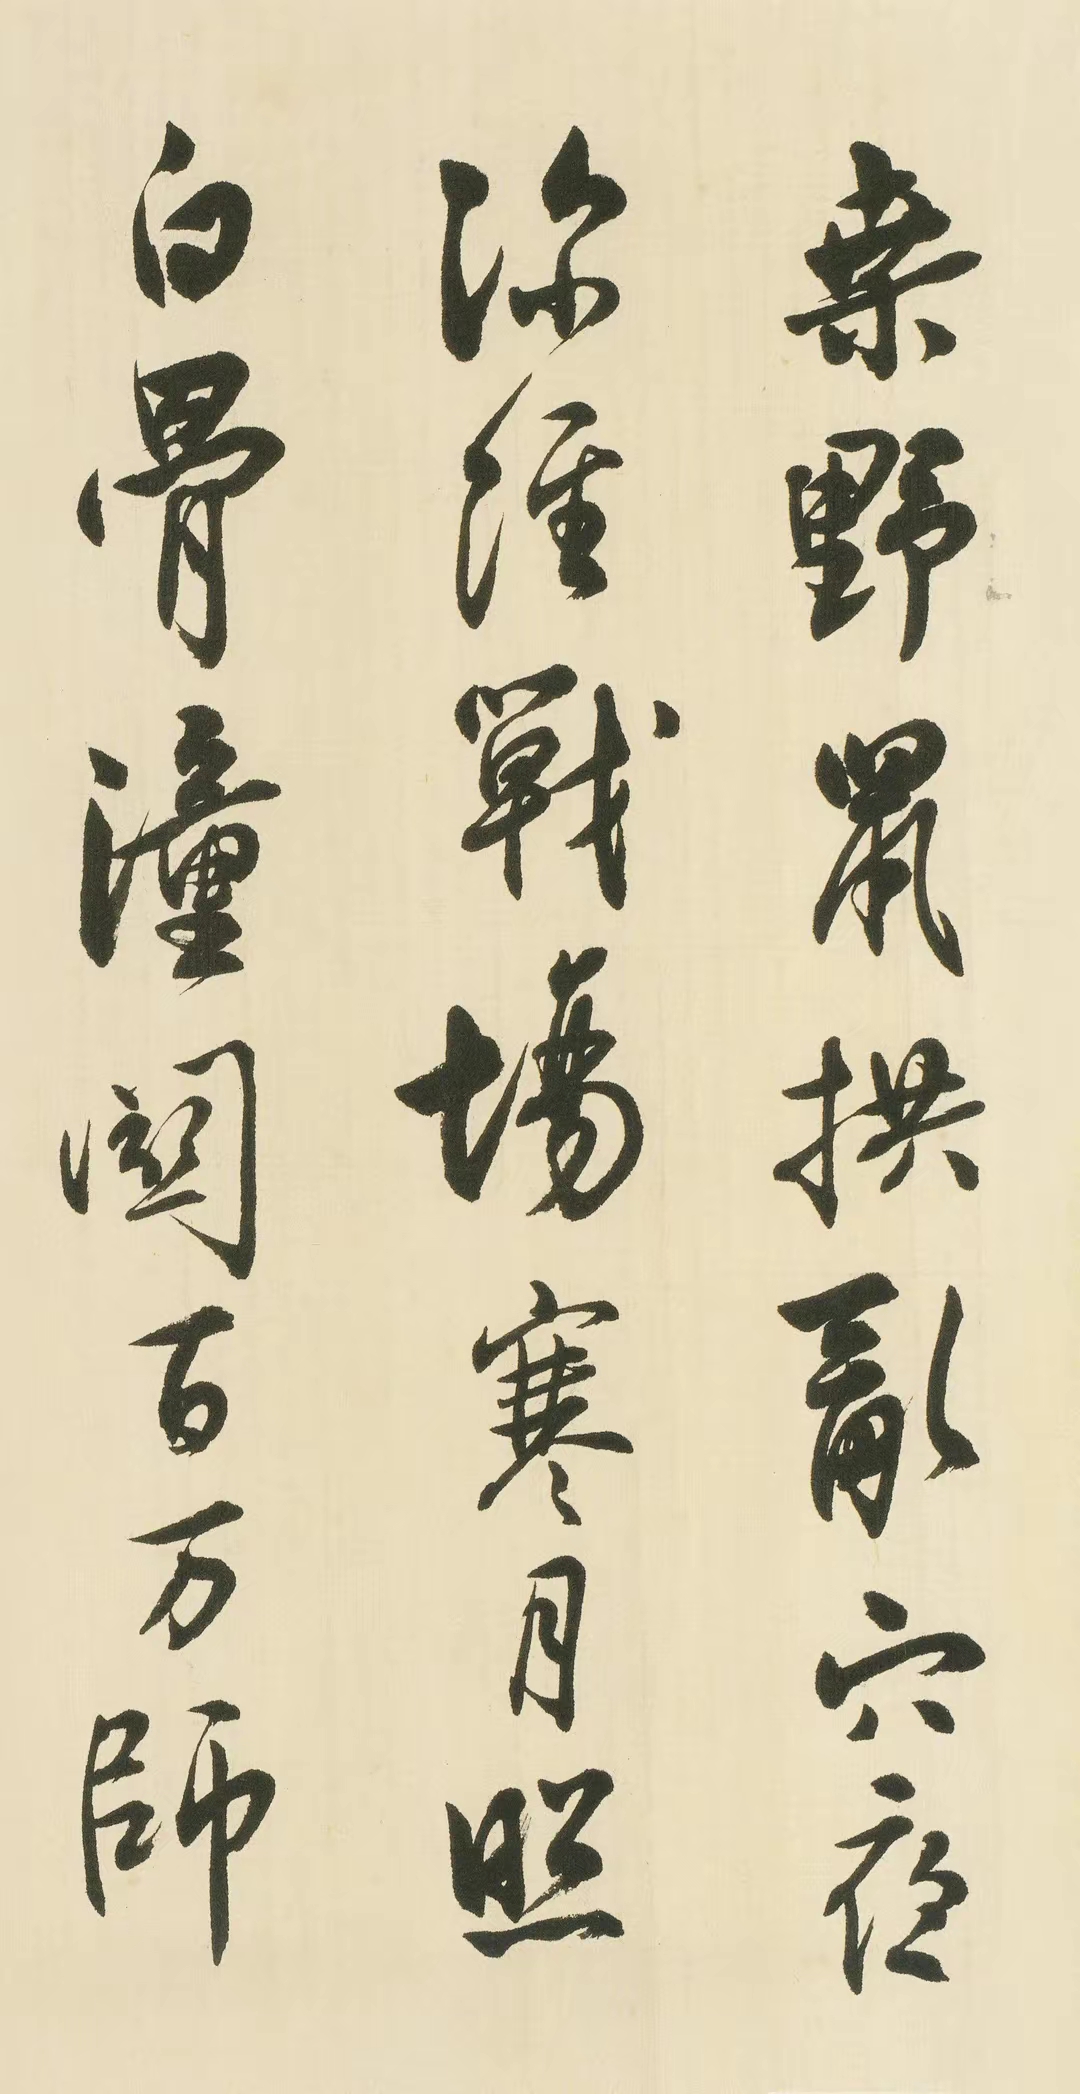 桒野鼠拱亂穴夜
深經戰場寒月照
白骨潼關百万師